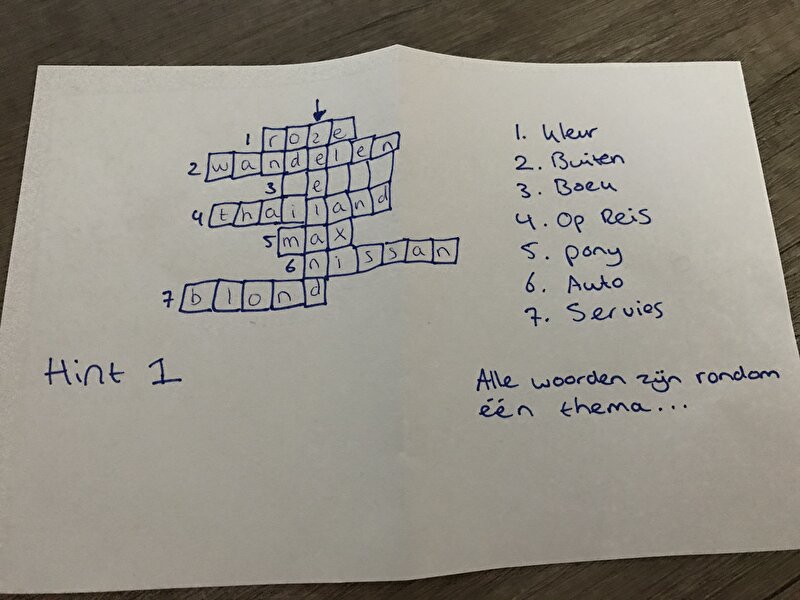 1 roze
2 wandelen
3 e
4 thailand
5 max
6 nissan
7 blond
Hint 1
1. Kleur
2. Buiten
3. Boek
4. Op Reis
5. pony
6. Auto
7. Servies
Alle woorden zijn rondom
één thema...